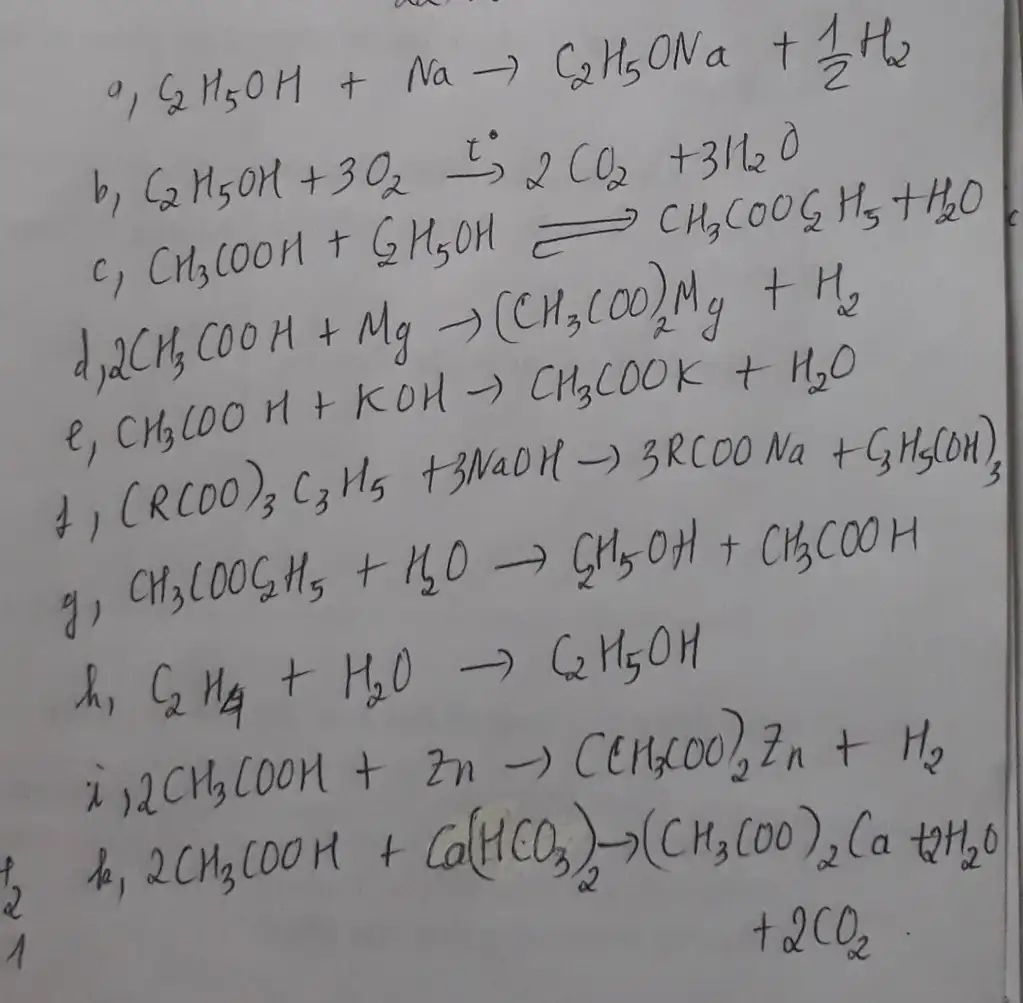 a, C₂H₅OH + Na → C₂H₅ONa + 1/2 H₂
b, C₂H₅OH + 3O₂ →(t°) 2CO₂ + 3H₂O
c, CH₃COOH + C₂H₅OH ⇌ CH₃COOC₂H₅ + H₂O
d, 2CH₃COOH + Mg → (CH₃COO)₂Mg + H₂
e, CH₃COOH + KOH → CH₃COOK + H₂O
f, (RCOO)₃C₃H₅ + 3NaOH → 3RCOONa + C₃H₅(OH)₃
g, CH₃COOC₂H₅ + H₂O → C₂H₅OH + CH₃COOH
h, C₂H₄ + H₂O → C₂H₅OH
i, 2CH₃COOH + Zn → (CH₃COO)₂Zn + H₂
k, 2CH₃COOH + Ca(HCO₃)₂ → (CH₃COO)₂Ca + 2H₂O
+ 2CO₂
2
1